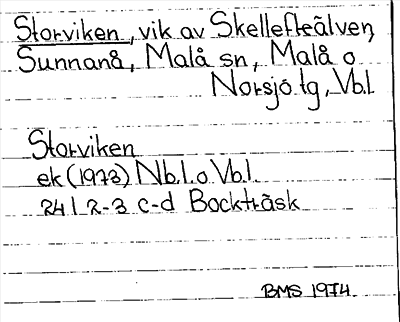 Storviken, vik av Skellefteälven,
Sunnanå, Malå sn, Malå o
Norsjö tg, Vbl.
Storviken
ek (1973) Nb.l. o Vb.l.
24 I 2-3 c-d Bockträsk
BMS 1974.